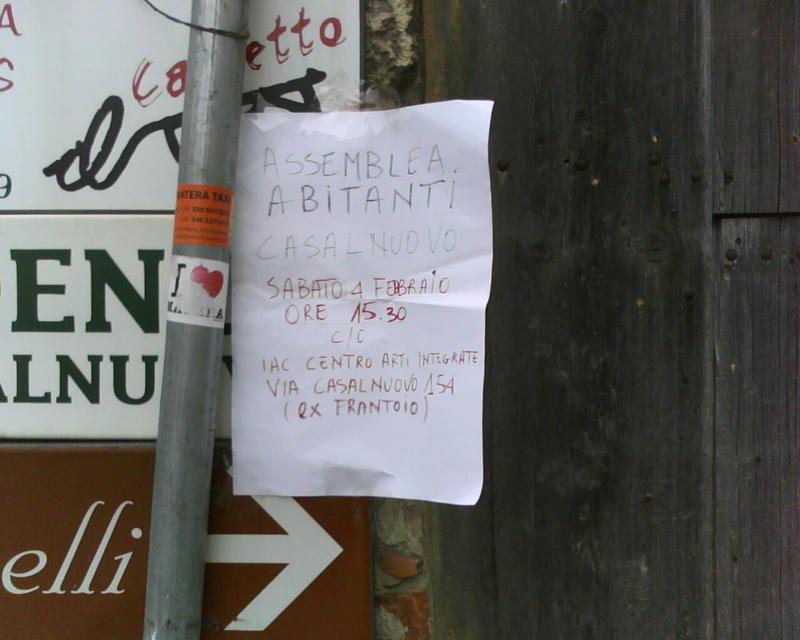 A
S
9
etto
MATERA TAXI
I
DEN
ALNU
elli
ASSEMBLEA.
ABITANTI
CASALNUOVO
SABATO 4 FEBBRAIO
ORE 15.30
C/O
IAC CENTRO ARTI INTEGRATE
VIA CASALNUOVO 154
(EX FRANTOIO)